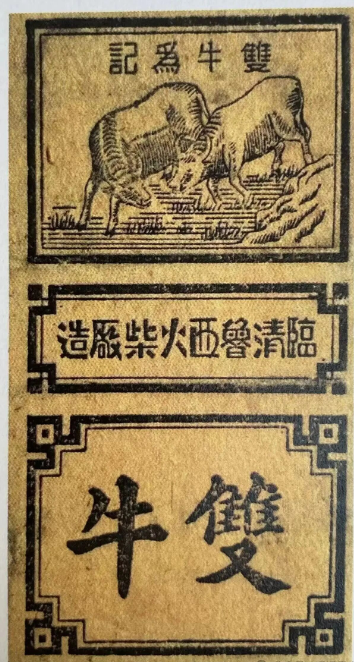 雙牛為記
臨清魯西火柴厰造
雙牛